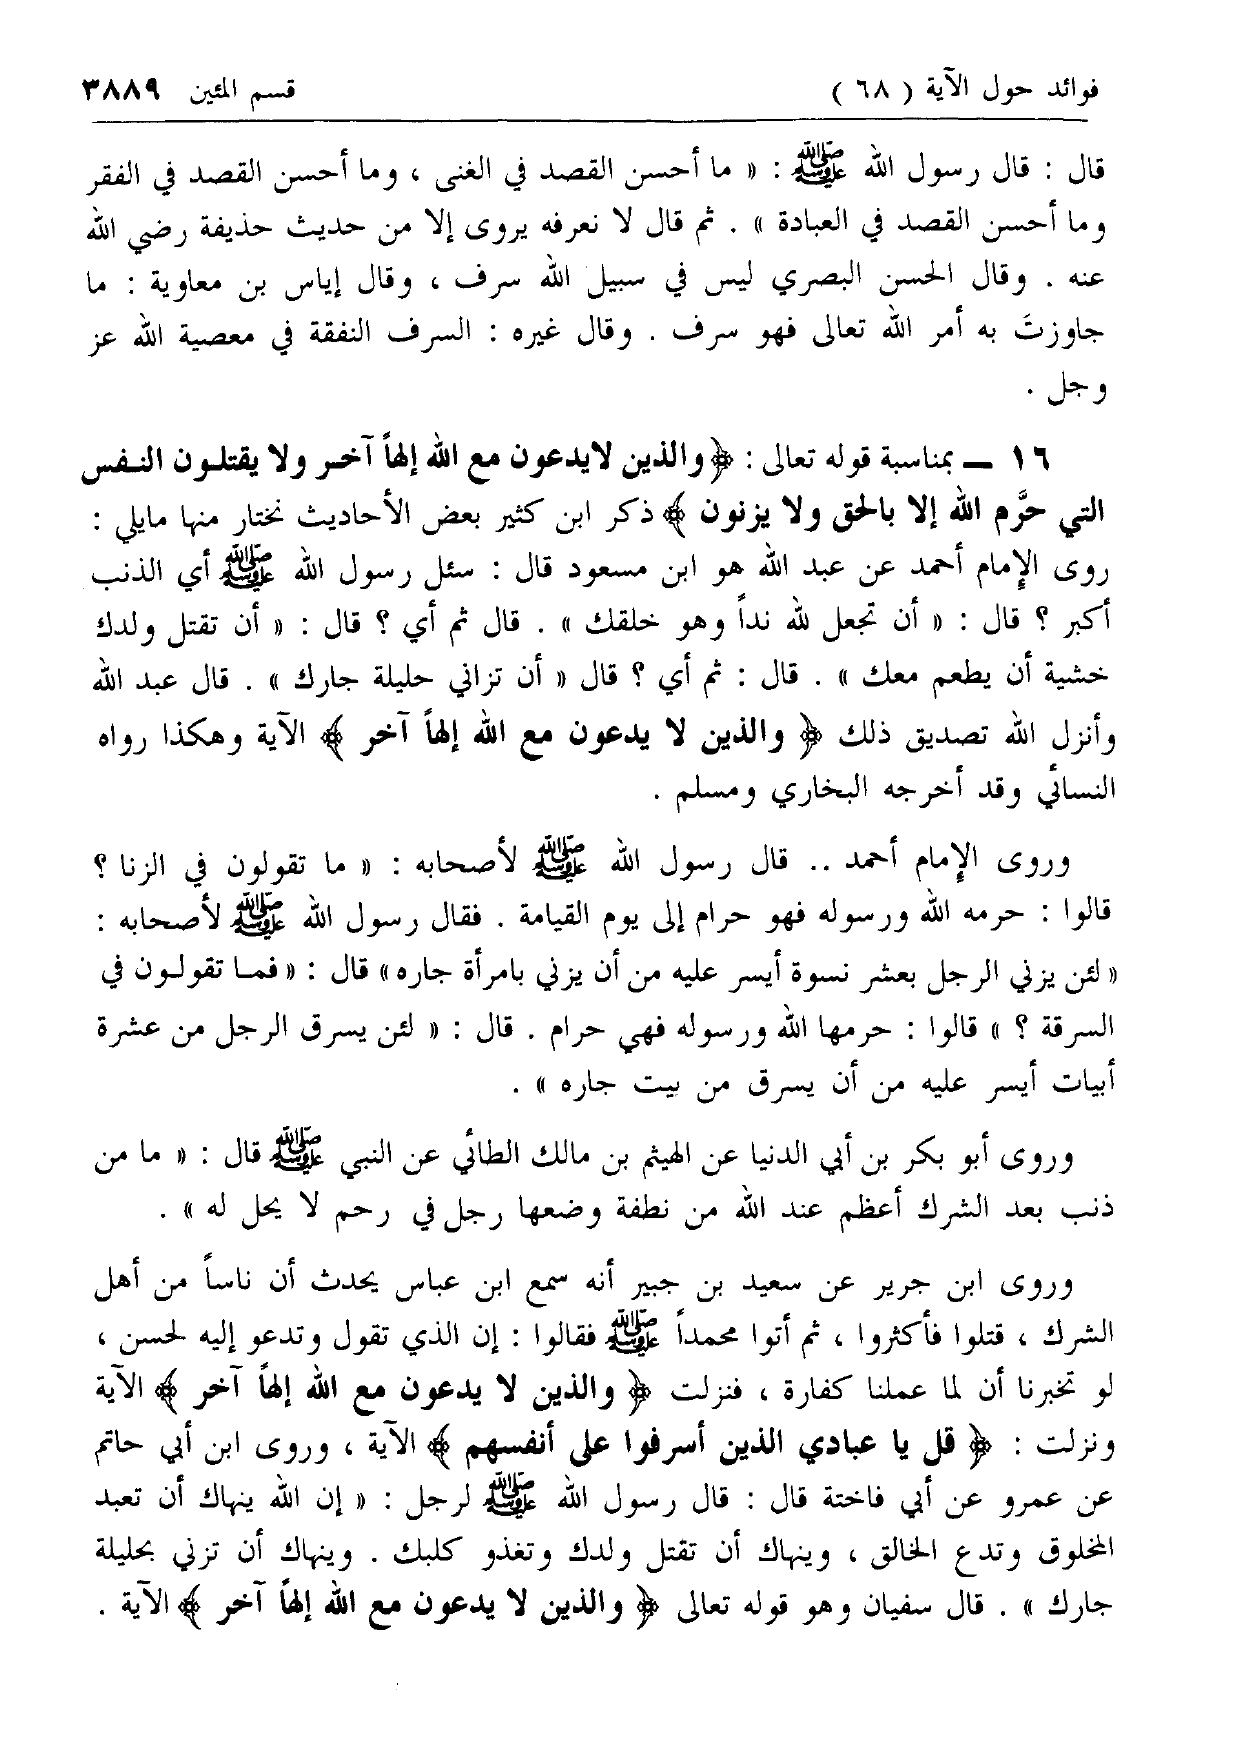 فوائد حول الآية ( ٦٨ ) قسم المئين ٣٨٨٩
قال : قال رسول الله ﷺ : « ما أحسن القصد في الغنى ، وما أحسن القصد في الفقر
وما أحسن القصد في العبادة » . ثم قال لا نعرفه يروى إلا من حديث حذيفة رضي الله
عنه . وقال الحسن البصري ليس في سبيل الله سرف ، وقال إياس بن معاوية : ما
جاوزتَ به أمر الله تعالى فهو سرف . وقال غيره : السرف النفقة في معصية الله عز
وجل .
١٦ ــ بمناسبة قوله تعالى : ﴿ والذين لايدعون مع الله إلهاً آخر ولا يقتلون النفس
التي حرَّم الله إلا بالحق ولا يزنون ﴾ ذكر ابن كثير بعض الأحاديث نختار منها مايلي :
روى الإمام أحمد عن عبد الله هو ابن مسعود قال : سئل رسول الله ﷺ أي الذنب
أكبر ؟ قال : « أن تجعل لله نداً وهو خلقك » . قال ثم أي ؟ قال : « أن تقتل ولدك
خشية أن يطعم معك » . قال : ثم أي ؟ قال « أن تزاني حليلة جارك » . قال عبد الله
وأنزل الله تصديق ذلك ﴿ والذين لا يدعون مع الله إلهاً آخر ﴾ الآية وهكذا رواه
النسائي وقد أخرجه البخاري ومسلم .
وروى الإمام أحمد .. قال رسول الله ﷺ لأصحابه : « ما تقولون في الزنا ؟
قالوا : حرمه الله ورسوله فهو حرام إلى يوم القيامة . فقال رسول الله ﷺ لأصحابه :
« لئن يزني الرجل بعشر نسوة أيسر عليه من أن يزني بامرأة جاره » قال : « فما تقولون في
السرقة ؟ » قالوا : حرمها الله ورسوله فهي حرام . قال : « لئن يسرق الرجل من عشرة
أبيات أيسر عليه من أن يسرق من بيت جاره » .
وروى أبو بكر بن أبي الدنيا عن الهيثم بن مالك الطائي عن النبي ﷺ قال : « ما من
ذنب بعد الشرك أعظم عند الله من نطفة وضعها رجل في رحم لا يحل له » .
وروى ابن جرير عن سعيد بن جبير أنه سمع ابن عباس يحدث أن ناساً من أهل
الشرك ، قتلوا فأكثروا ، ثم أتوا محمداً ﷺ فقالوا : إن الذي تقول وتدعو إليه لحسن ،
لو تخبرنا أن لما عملنا كفارة ، فنزلت ﴿ والذين لا يدعون مع الله إلهاً آخر ﴾ الآية
ونزلت : ﴿ قل يا عبادي الذين أسرفوا على أنفسهم ﴾ الآية ، وروى ابن أبي حاتم
عن عمرو عن أبي فاختة قال : قال رسول الله ﷺ لرجل : « إن الله ينهاك أن تعبد
المخلوق وتدع الخالق ، وينهاك أن تقتل ولدك وتغذو كلبك . وينهاك أن تزني بحليلة
جارك » . قال سفيان وهو قوله تعالى ﴿ والذين لا يدعون مع الله إلهاً آخر ﴾ الآية .